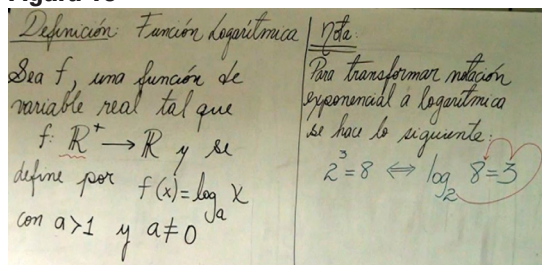 Definición: Función Logarítmica
Sea f, una función de
variable real tal que
f: ℝ⁺ → ℝ y se
define por f(x)=logₐ x
con a>1 y a≠0
Nota:
Para transformar notación
exponencial a logarítmica
se hace lo siguiente:
2³=8 ⇔ log₂ 8=3